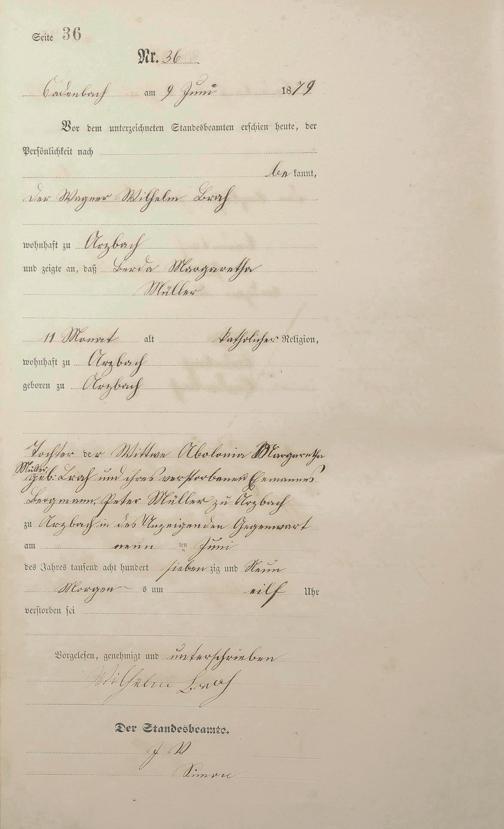 Seite 36
Nr. 36
Cadenbach am 9 Juni 1879
Vor dem unterzeichneten Standesbeamten erschien heute, der
Persönlichkeit nach
be kannt,
der Wagner Wilhelm Brah
wohnhaft zu Arzbach
und zeigte an, daß Berda Margaretha
Müller
11 Monat alt katholischer Religion,
wohnhaft zu Arzbach
geboren zu Arzbach
Tochter der Wittwe Abolonia Margaretha
Müller
geb. Brah und ihres verstorbenen Ehemannes
Bergmann Peter Müller zu Arzbach
zu Arzbach in des Anzeigenden Gegenwart
am neun ten Juni
des Jahres tausend acht hundert sieben zig und Neun
Morgen s um eilf Uhr
verstorben sei
Vorgelesen, genehmigt und unterschrieben
Wilhelm Brah
Der Standesbeamte.
J V
Simon